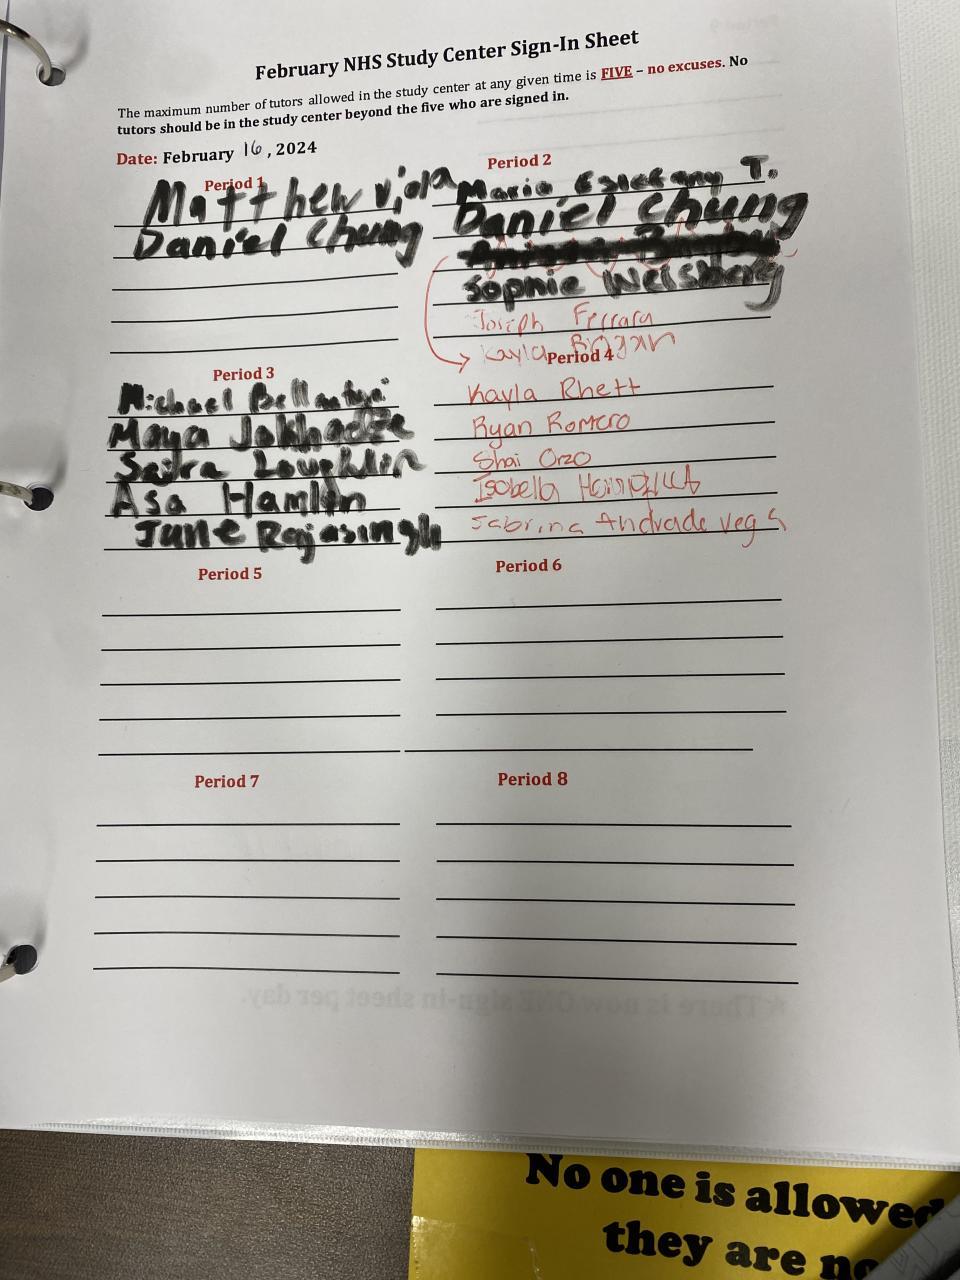 February NHS Study Center Sign-In Sheet
The maximum number of tutors allowed in the study center at any given time is FIVE – no excuses. No
tutors should be in the study center beyond the five who are signed in.
Date: February 16, 2024
Period 1
Matthew Viola
Daniel Chung
Period 2
Maria T.
Daniel Chung
Sophie Weisberg
Joseph Ferrara
Kayla
Period 3
Michael
Maya Jokhadze
Loughlin
Asa Hamlin
June Rajasingh
Period 4
Kayla Rhett
Ryan Romero
Shai Orzo
Isabella
Sabrina Andrade Vega
Period 5
Period 6
Period 7
Period 8
*There is now ONE sign-in sheet per day.
No one is allowed
they are no